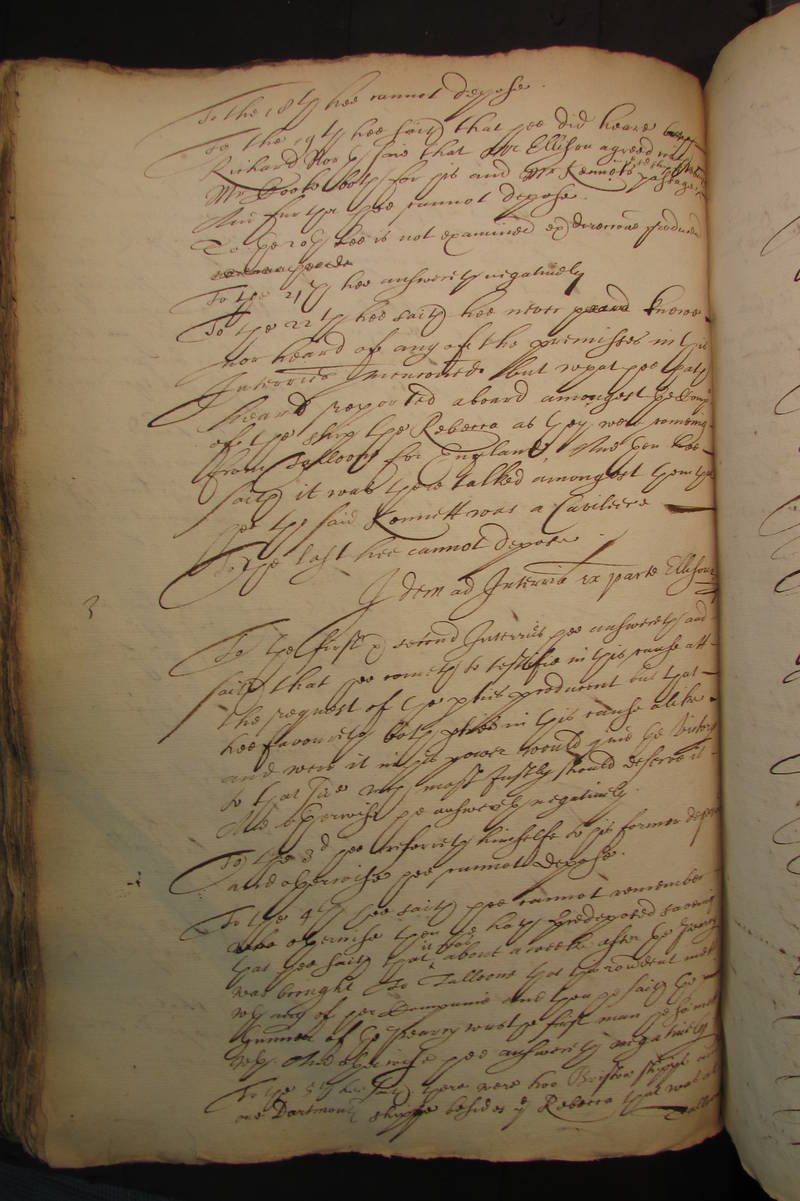 To the 18th hee cannot depose.
To the 19th hee saith that hee did heare
Richard say that Mr Ellison agreed
Mr both for his and Mr Kennets passage
And further hee cannot depose.
To the 20th hee is not examined ex direccione producentis
To the 21th hee answereth negatively
To the 22th hee saith hee never knowe
nor heard of any of the premisses in this
Interrie menconed but what hee hath
heard reported aboard amongest the
of the shipp the Rebecca as they were comming
from Talloone for England, And then hee
saith it was there talked amongest them that
hee the said Kennett was a Caviliere
To the last hee cannot depose.
Idem ad Interria ex parte Ellison
3
To the first & second Interries hee answereth and
saith that hee cometh to testifie in this cause att
the request of the producent but that
hee favoureth both in this cause alike
and were it in his power would give the victory
to that side wch most justly should deserve it
And otherwise he answereth negatively.
To the 3d hee referreth himselfe to his former
and otherwise hee cannot depose.
To the 4th hee saith hee cannot remember
otherwise then he hath predeposed saveing
that hee saith that it was about a weeke after the Hearn
was brought to Talloone that this rondent mett
wth any of her Companie and then he saith the
Gunner of the was the first man he
wth. And otherwise hee answereth negatively
To the 5th hee saith there were two Bristoe shipps and
one Dartmouth shippe besides ye Rebecca that was att